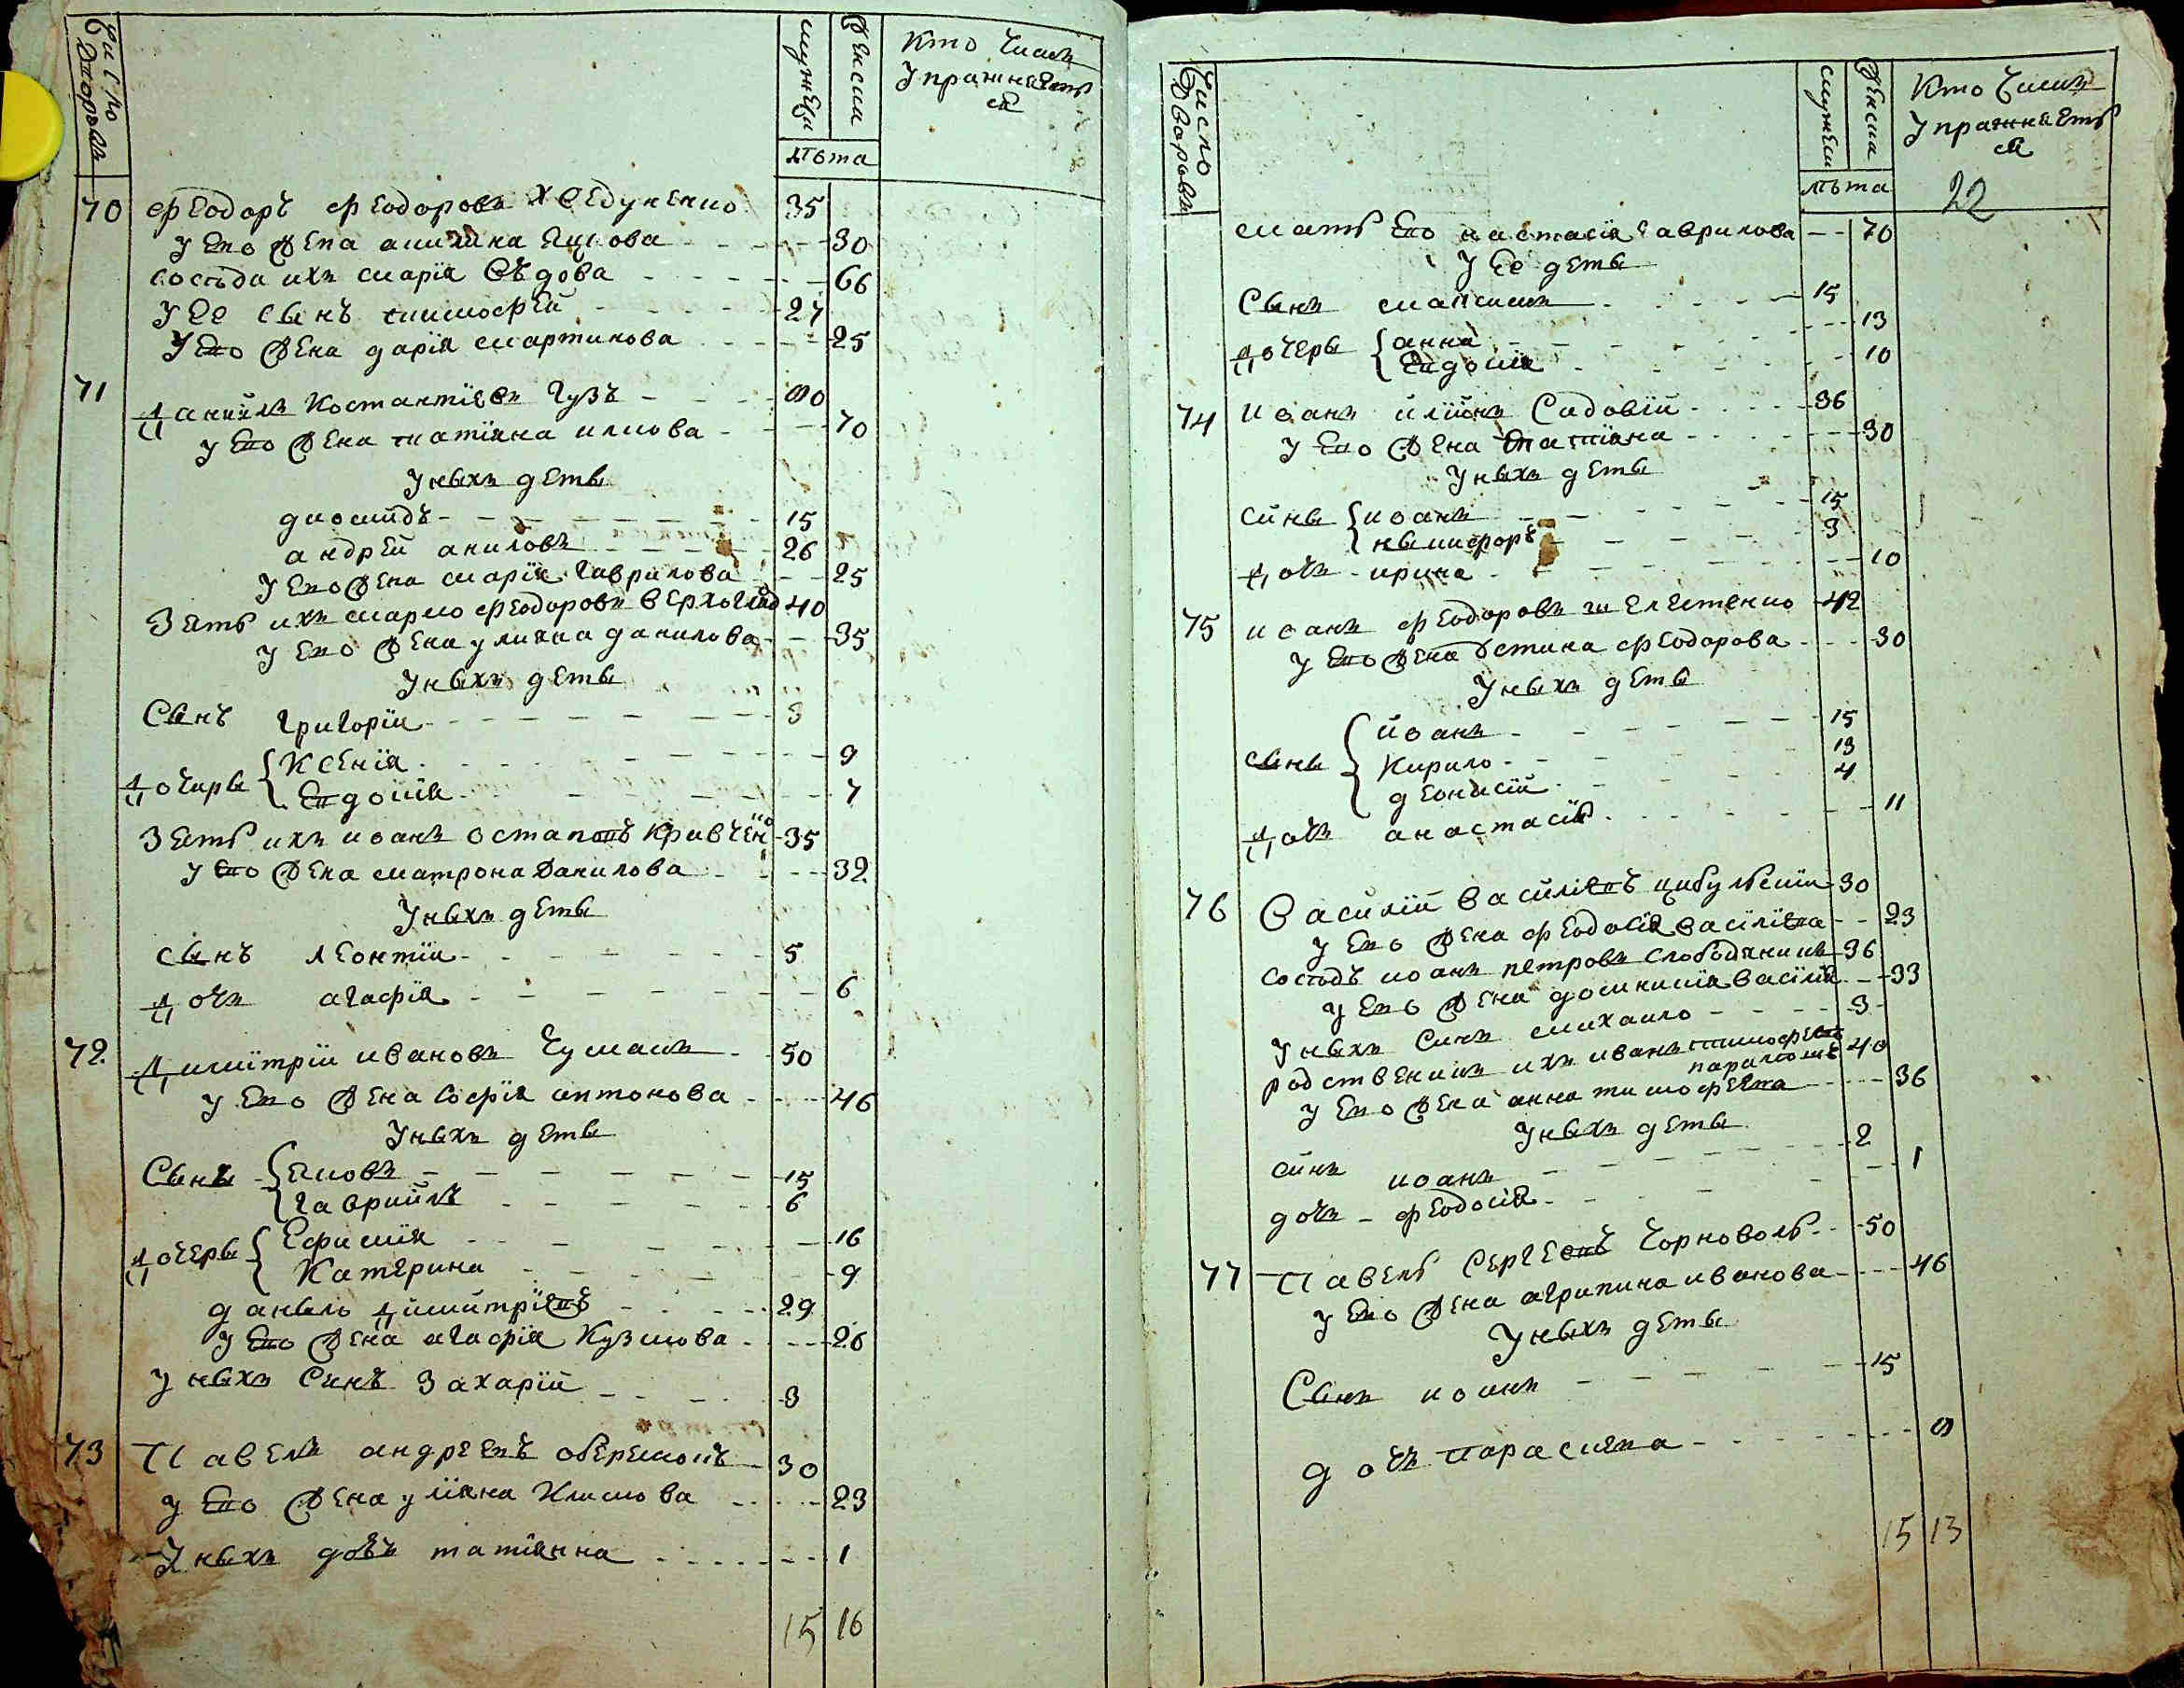 Число Дворовъ
мужески
Женски
лѣта
Кто Чимъ
Упражняеть
ся
70 Феодоръ Феодоровъ 35
у Его Жена Акилина 30
сосѣда ихъ Марія Сѣдова 66
у Ее Сынъ тимофей 27
у Его Жена дарія мартинова 25
71 Даниилъ Костантіевъ Гузъ 80
у Его Жена татіяна 70
У ныхъ деты
диомидъ 15
андрей 26
у Его Жена марія Гаврилова 25
Зять ихъ марко Феодоровъ 40
у Его Жена улияна данилова 35
У ныхъ деты
Сынъ Григорій 3
Дочеры Ксенія 9
Евдокия 7
Зять ихъ иоанъ Остаповъ Кривченко 35
у Его Жена матрона Данилова 32
У ныхъ деты
Сынъ леонтій 5
Дочъ агафія 6
72 Димитрій ивановъ Чумакъ 50
у Его Жена Софія антонова 46
У ныхъ деты
Сыны яковъ 15
Гавриилъ 6
Дочеры Ефимія 16
Катерина 9
даныло Димитріевъ 29
у Его Жена агафія Кузмова 26
у ныхъ Синъ Захарій 3
73 Павелъ андреевъ 30
у Его Жена уліяна Климова 23
У ныхъ дочъ татіянна 1
15 16
Число Дворовъ
мужески
Женска
лѣта
Кто Чимъ
Упражняеть
ся
22
мать Его настасія Гаврилова 70
у Ее деты
Сынъ максимъ 15
Дочеры анна 13
Евдокия 10
74 Иоанъ Садовій 36
у Его Жена татіяна 30
У ныхъ деты
Сины иоанъ 15
ныкифоръ 3
Дочъ ирина 10
75 иоанъ Феодоровъ 42
у Его Жена Феодорова 30
У ныхъ деты
Сыны йоанъ 15
Кирило 13
деонисій 4
Дочъ анастасія 11
76 Василій Василіевъ цибулскій 30
у Его Жена Феодосія василіева 23
сосѣдъ иоанъ петровъ Слободяникъ 36
у Его Жена домникия василія 33
у ныхъ Синъ михаило 3
родственикъ ихъ иванъ тимофеевъ 40
у Его Жена анна тимофеева 36
У ныхъ деты
синъ иоанъ 2
дочъ феодосія 1
77 Павелъ Сергеевъ Чорноволъ 50
у Его Жена агрипина иванова 46
У ныхъ деты
Сынъ иоанъ 15
дочъ параскева 8
15 13